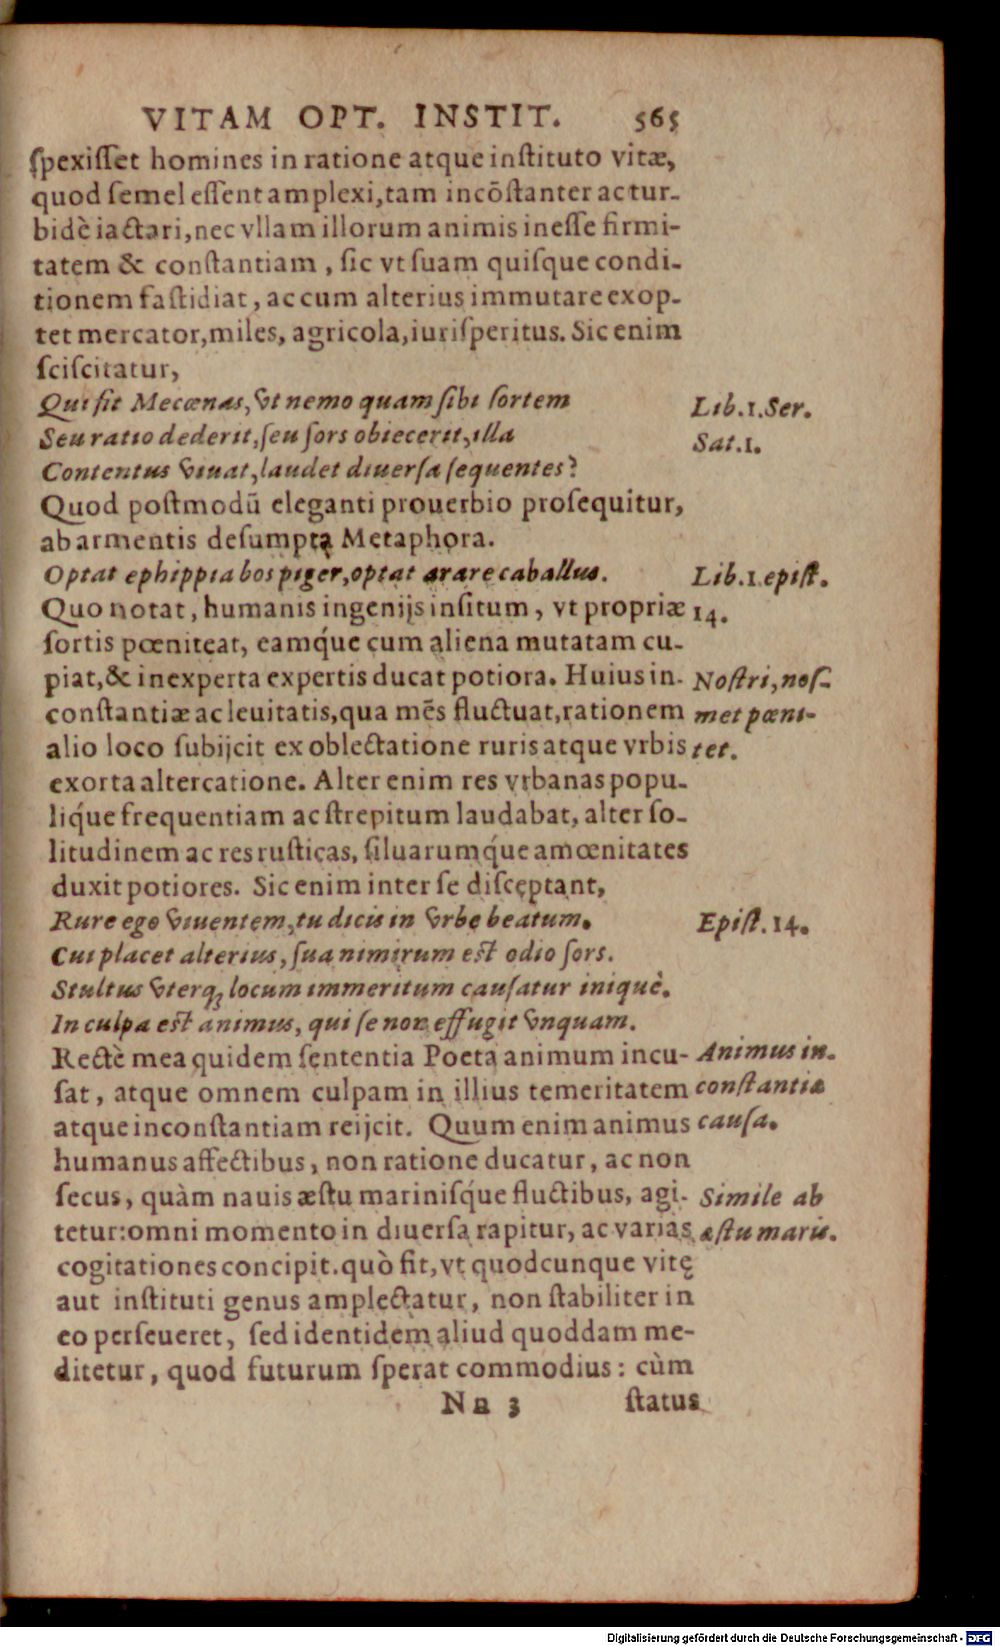 VITAM OPT. INSTIT. 565
ſpexiſſet homines in ratione atque inſtituto vitæ,
quod ſemel eſſent amplexi, tam incōſtanter ac tur-
bidè iactari, nec vllam illorum animis ineſſe firmi-
tatem & conſtantiam, ſic vt ſuam quiſque condi-
tionem faſtidiat, ac cum alterius immutare exop-
tet mercator, miles, agricola, iuriſperitus. Sic enim
ſciſcitatur,
Qui fit Mecœnas, vt nemo quam ſibi ſortem
Lib. 1. Ser.
Seu ratio dederit, ſeu ſors obiecerit, illa
Sat. 1.
Contentus viuat, laudet diuerſa ſequentes?
Quod poſtmodū eleganti prouerbio proſequitur,
ab armentis deſumpta Metaphora.
Optat ephippia bos piger, optat arare caballus.
Lib. 1. epiſt.
14.
Quo notat, humanis ingenijs inſitum, vt propriæ
ſortis pœniteat, eamq́ue cum aliena mutatam cu-
piat, & inexperta expertis ducat potiora. Huius in-
Noſtri, noſ-
conſtantiæ ac leuitatis, qua mēs fluctuat, rationem
met pœni-
alio loco ſubijcit ex oblectatione ruris atque vrbis
tet.
exorta altercatione. Alter enim res vrbanas popu-
liq́ue frequentiam ac ſtrepitum laudabat, alter ſo-
litudinem ac res ruſticas, ſiluarumq́ue amœnitates
duxit potiores. Sic enim inter ſe diſceptant,
Rure ego viuentem, tu dicis in vrbe beatum.
Epiſt. 14.
Cui placet alterius, ſua nimirum eſt odio ſors.
Stultus vterq; locum immeritum cauſatur iniquè.
In culpa eſt animus, qui ſe non effugit vnquam.
Rectè mea quidem ſententia Poeta animum incu-
Animus in-
ſat, atque omnem culpam in illius temeritatem
conſtantiæ
atque inconſtantiam reijcit. Quum enim animus
cauſa.
humanus affectibus, non ratione ducatur, ac non
ſecus, quàm nauis æſtu mariniſq́ue fluctibus, agi-
Simile ab
tetur: omni momento in diuerſa rapitur, ac varias
æſtu maris.
cogitationes concipit. quò fit, vt quodcunque vitę
aut inſtituti genus amplectatur, non ſtabiliter in
eo perſeueret, ſed identidem aliud quoddam me-
ditetur, quod futurum ſperat commodius: cùm
Nn 3 ſtatus
Digitalisierung gefördert durch die Deutsche Forschungsgemeinschaft - DFG